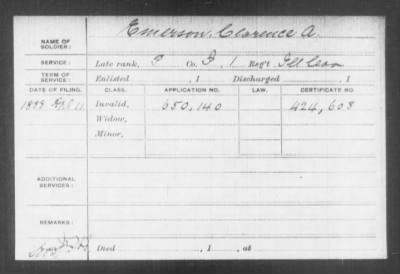 NAME OF SOLDIER: Emerson, Clarence A.
SERVICE: Late rank, P Co. I, 1 Reg't Ill Cav
TERM OF SERVICE: Enlisted , 1 Discharged , 1
DATE OF FILING. CLASS. APPLICATION NO. LAW. CERTIFICATE NO.
1888 Invalid, 650,140 424,608
Widow,
Minor,
ADDITIONAL SERVICES:
REMARKS:
Died , 1 , at